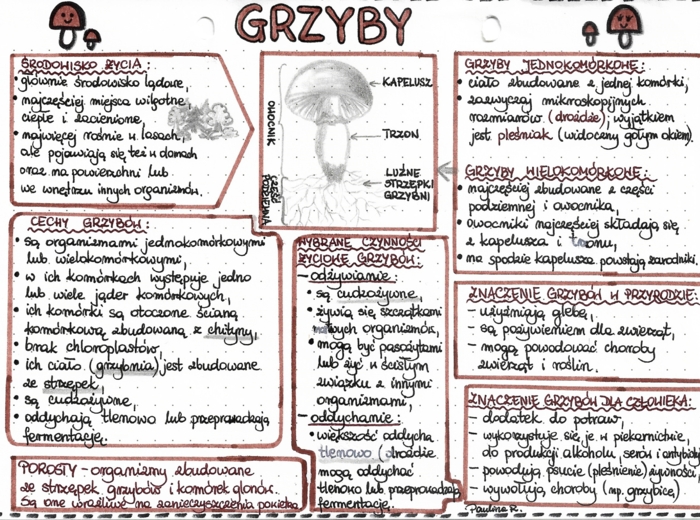 GRZYBY
ŚRODOWISKO ŻYCIA:
• głównie środowisko lądowe,
• najczęściej miejsca wilgotne,
ciepłe i zacienione,
• najwięcej rośnie w lasach,
ale pojawiają się też w domach
oraz na powierzchni lub
we wnętrzu innych organizmów.
CECHY GRZYBÓW:
• są organizmami jednokomórkowymi
lub wielokomórkowymi,
• w ich komórkach występuje jedno
lub wiele jąder komórkowych,
• ich komórki są otoczone ścianą
komórkową zbudowaną z chityny,
• brak chloroplastów,
• ich ciało (grzybnia) jest zbudowane
ze strzępek,
• są cudzożywne,
• oddychają tlenowo lub przeprowadzają
fermentację.
POROSTY - organizmy zbudowane
ze strzępek grzybów i komórek glonów.
Są one wrażliwe na zanieczyszczenia powietrza
OWOCNIK
CZĘŚĆ PODZIEMNA
KAPELUSZ
TRZON
LUŹNE
STRZĘPKI
GRZYBNI
WYBRANE CZYNNOŚCI
ŻYCIOWE GRZYBÓW:
- odżywianie:
• są cudzożywne,
• żywią się szczątkami
martwych organizmów,
• mogą być pasożytami
lub żyć w ścisłym
związku z innymi
organizmami,
- oddychanie:
• większość oddycha
tlenowo (drożdże
mogą oddychać
tlenowo lub przeprowadzają
fermentację.
GRZYBY JEDNOKOMÓRKOWE:
• ciało zbudowane z jednej komórki,
• zazwyczaj mikroskopijnych
rozmiarów (drożdże); wyjątkiem
jest pleśniak (widoczny gołym okiem).
GRZYBY WIELOKOMÓRKOWE:
• najczęściej zbudowane z części
podziemnej i owocnika,
• owocniki najczęściej składają się
z kapelusza i trzonu,
• na spodzie kapelusza powstają zarodniki.
ZNACZENIE GRZYBÓW W PRZYRODZIE:
- użyźniają glebę,
- są pożywieniem dla zwierząt,
- mogą powodować choroby
zwierząt i roślin.
ZNACZENIE GRZYBÓW DLA CZŁOWIEKA:
- dodatek do potraw,
- wykorzystuje się je w piekarnictwie,
do produkcji alkoholu, serów i antybioty
- powodują psucie (pleśnienie) żywności,
- wywołują choroby (np. grzybice).
Paulina R.